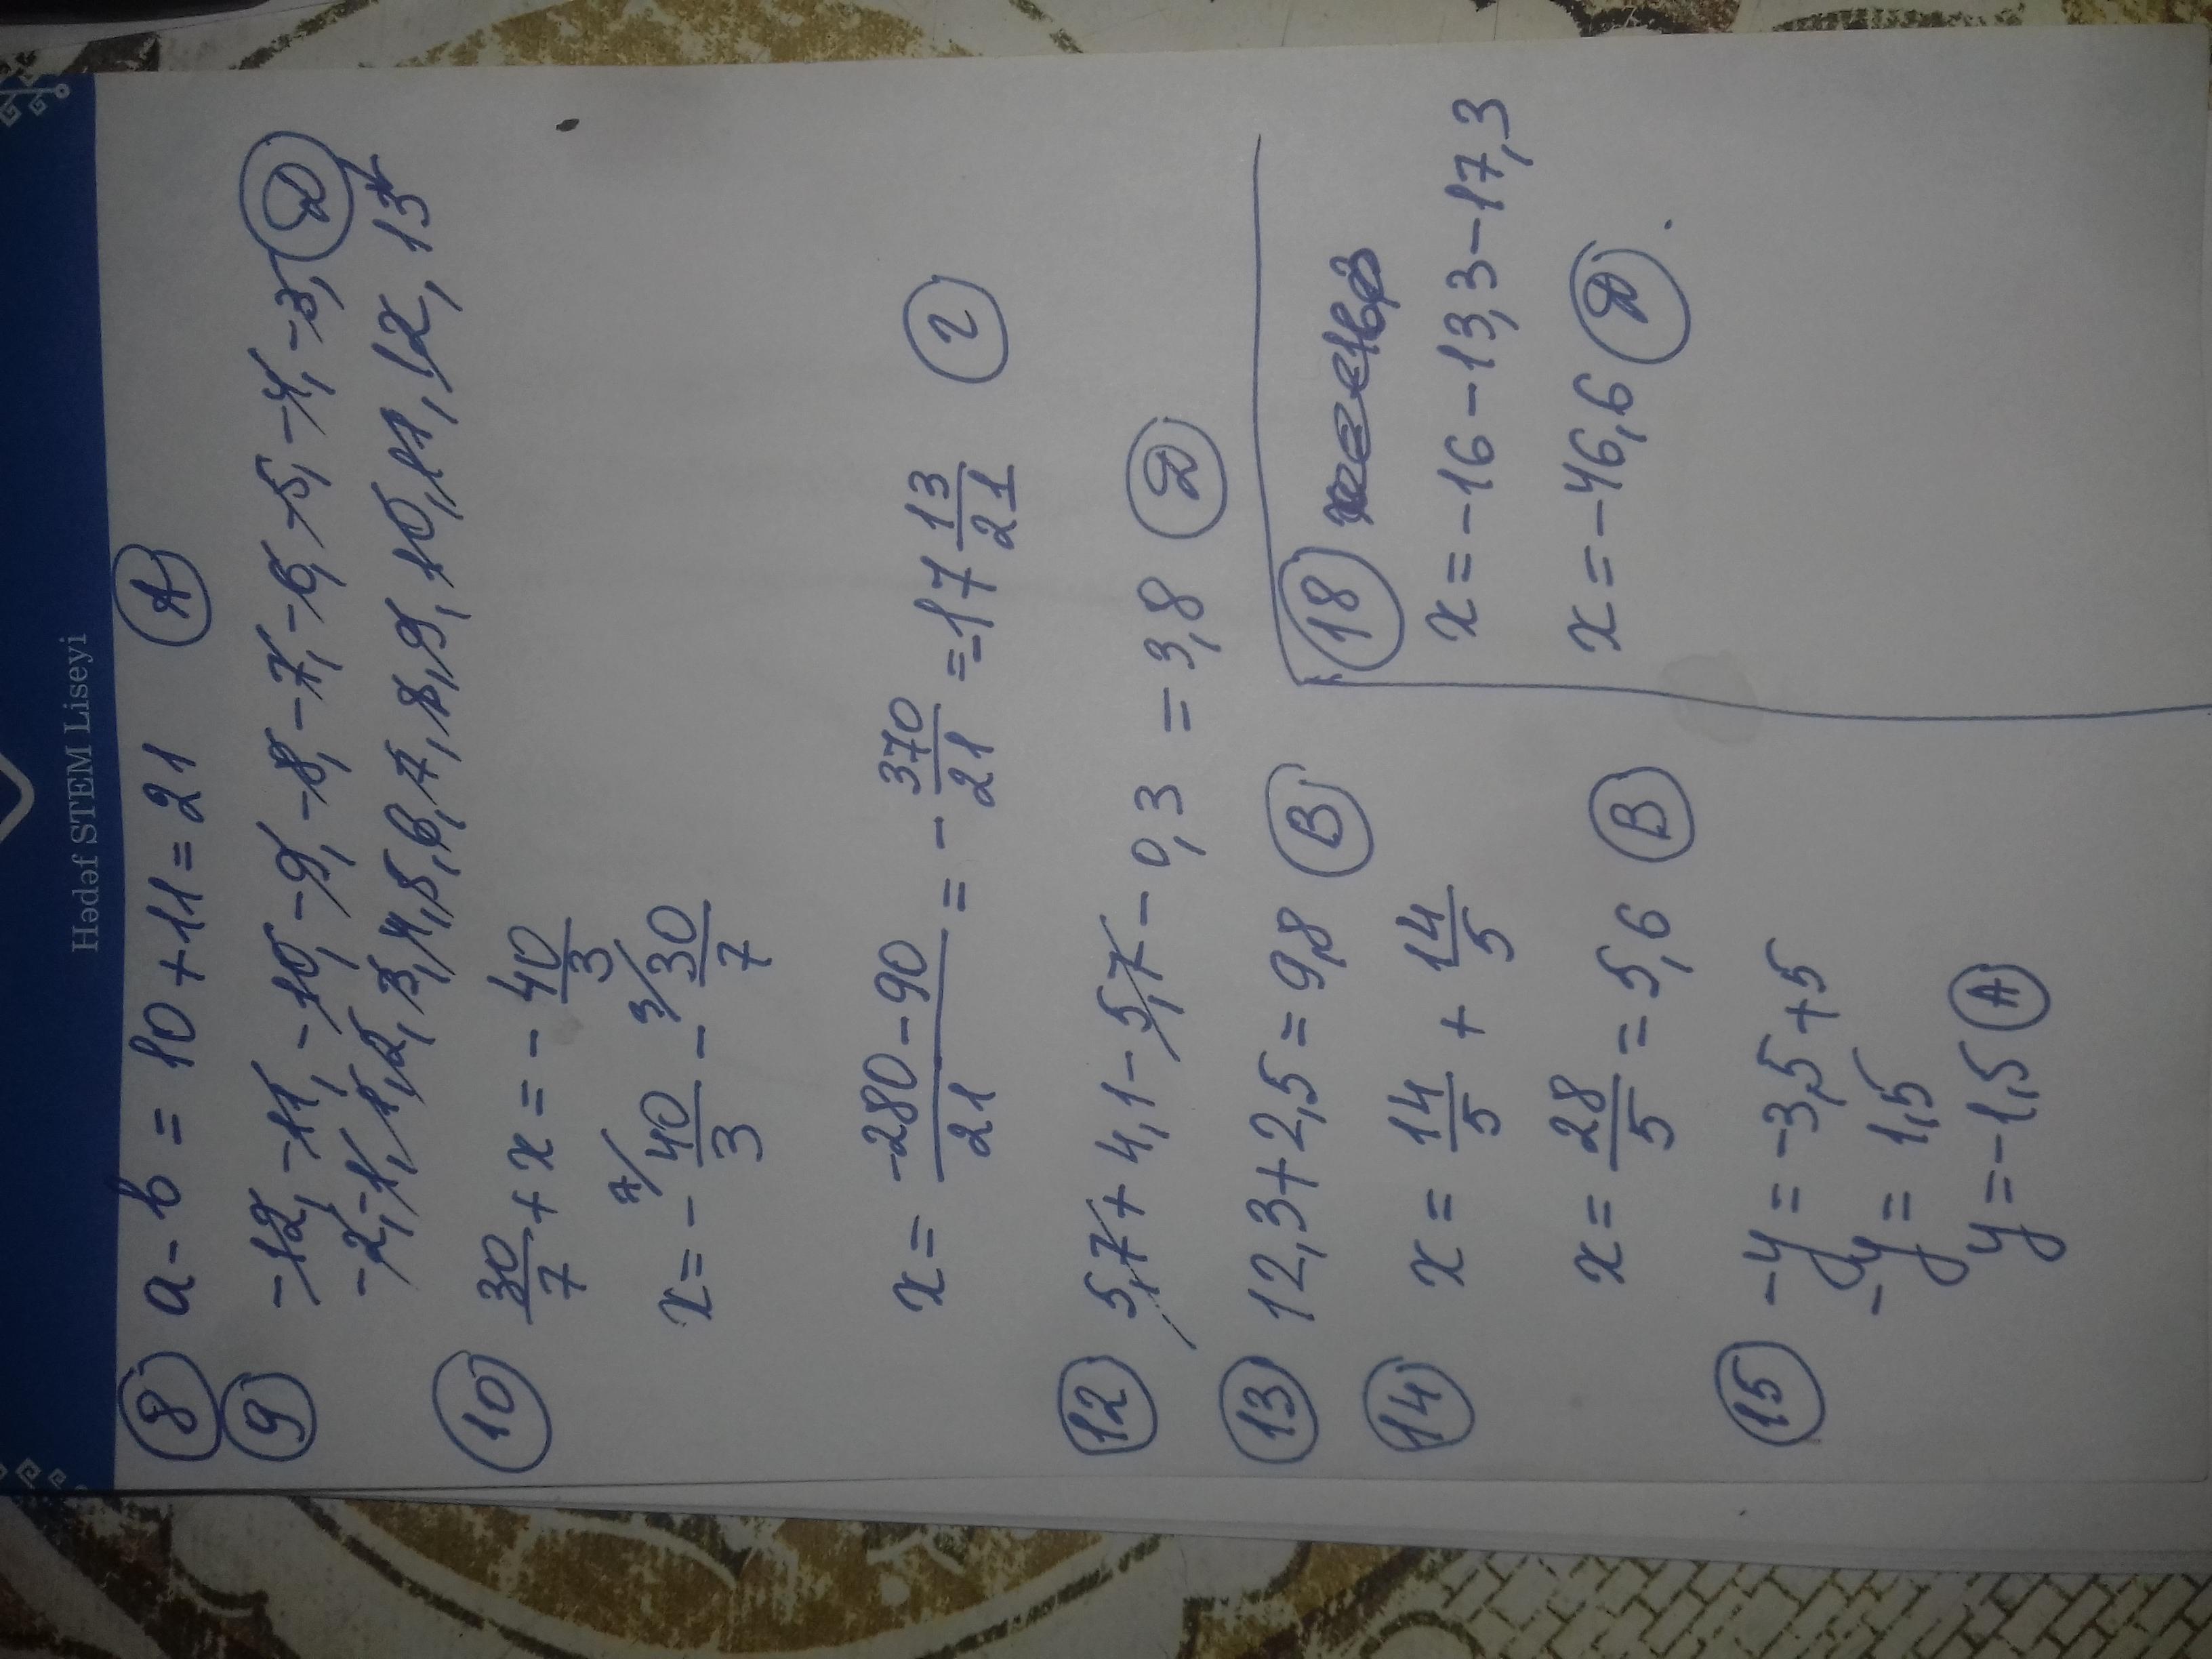 Hədəf STEM Liseyi
8 a-b = 10+11=21 A
9 -12, -11, -10, -9, -8, -7, -6, -5, -4, -3, Д
-2, -1, 1, 2, 3, 4, 5, 6, 7, 8, 9, 10, 11, 12, 13
10 30/7 + x = - 40/3
x = - 7/ 40/3 - 3/ 30/7
x = -280-90/21 = - 370/21 = -17 13/21 2
12 5,7 + 4,1 - 5,7 - 0,3 = 3,8 Д
13 12,3+2,5 = 9,8 B
14 x = 14/5 + 14/5
x = 28/5 = 5,6 B
15 -y = -3,5+5
-y = 1,5
y = -1,5 A
18
x = -16-13,3-17,3
x = -46,6 Д